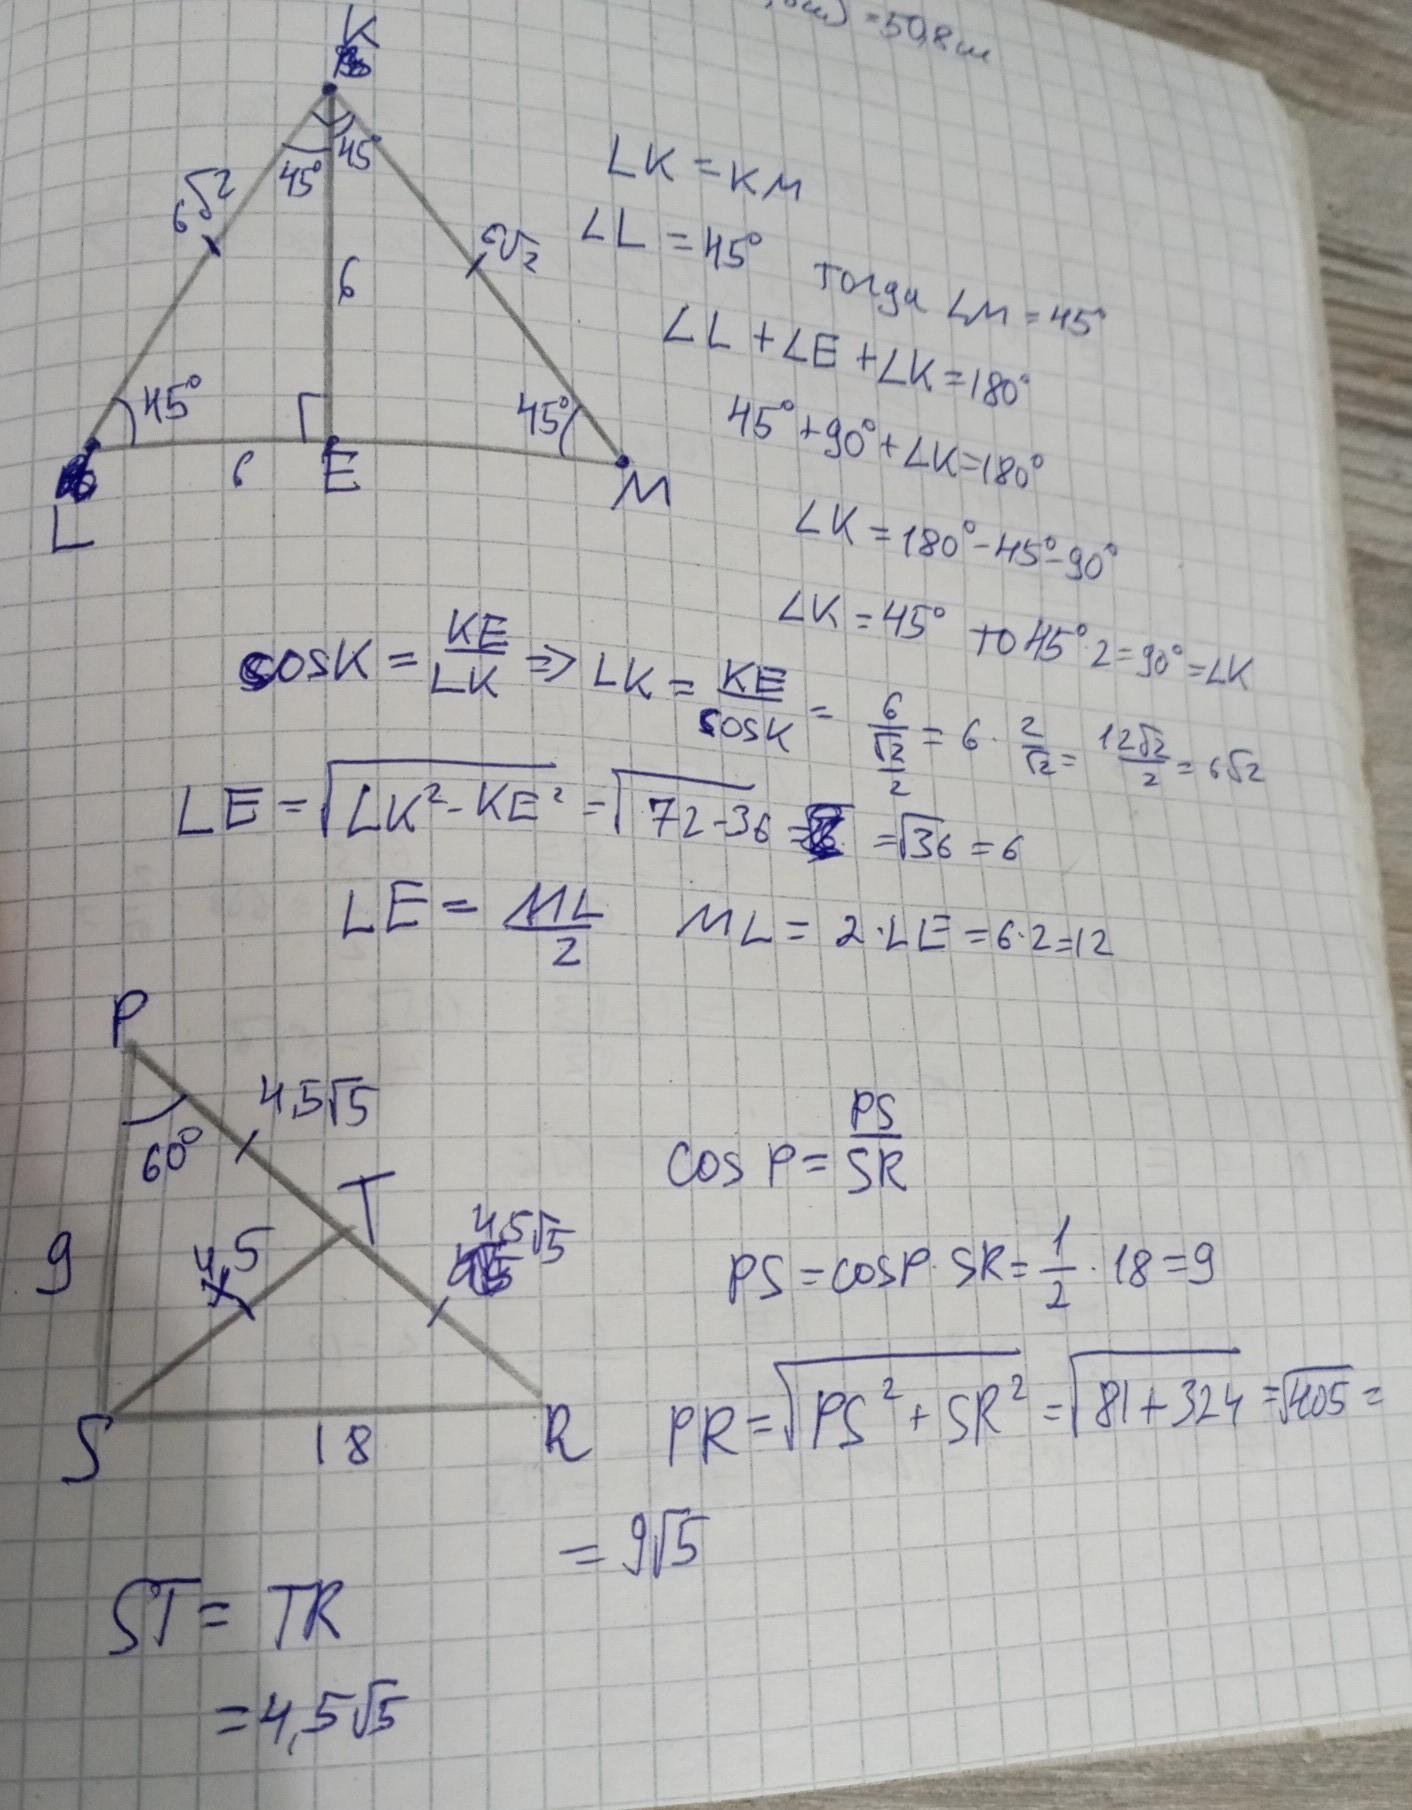 ) = 50,8 см
K
45° 45
6√2
6√2
6
45°
45°
6
E
M
L
LK = KM
∠L = 45° тогда ∠M = 45°
∠L + ∠E + ∠K = 180°
45° + 90° + ∠K = 180°
∠K = 180° - 45° - 90°
∠K = 45° то 45° · 2 = 90° = ∠K
cosK = KE/LK => LK = KE/cosK = 6/(√2/2) = 6 · 2/√2 = 12√2/2 = 6√2
LE = √(LK² - KE²) = √(72 - 36) = √36 = 6
LE = ML/2 ML = 2 · LE = 6 · 2 = 12
P
4,5√5
60°
T
4,5√5
9
4,5
S
18
R
cos P = PS/SR
PS = cosP · SR = 1/2 · 18 = 9
PR = √(PS² + SR²) = √(81 + 324) = √405 =
= 9√5
ST = TR
= 4,5√5